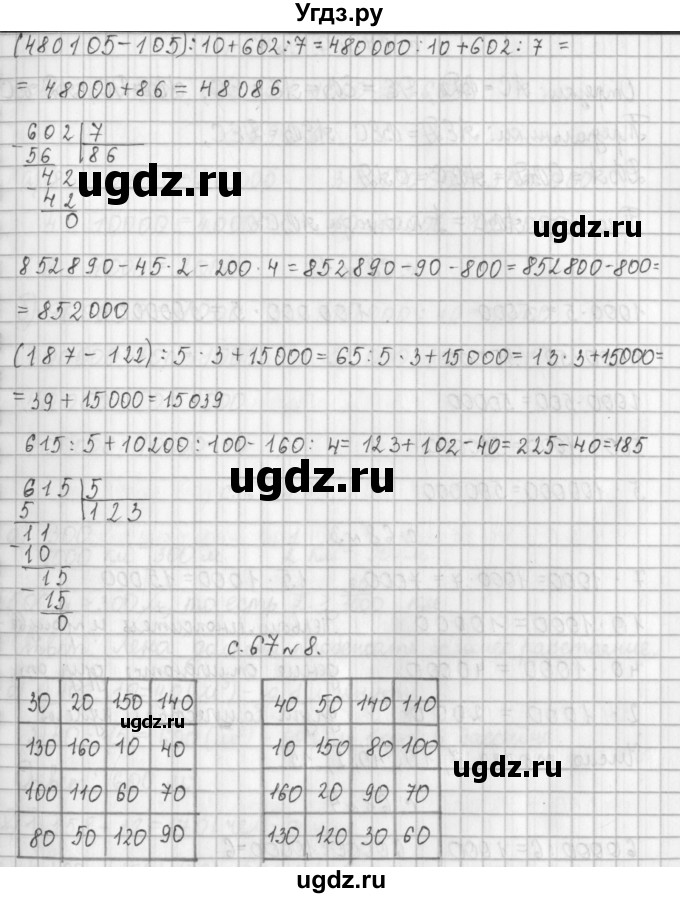 Угдз.ру
(480105-105):10+602:7=480000:10+602:7=
=48000+86=48086
602 7
56 86
42
42
0
ugdz.ru
ugdz.ru
852890-45·2-200·4=852890-90-800=852800-800=
=852000
(187-122):5·3+15000=65:5·3+15000=13·3+15000=
=39+15000=15039
ugdz.ru
615:5+10200:100-160:4=123+102-40=225-40=185
ugdz.ru
615 5
5 123
11
10
15
15
0
с.67№8.
30 20 150 140
130 160 10 40
100 110 60 70
80 50 120 90
ugdz.ru
40 50 140 110
10 150 80 100
160 20 90 70
130 120 30 60
ugdz.ru
ugdz.ru